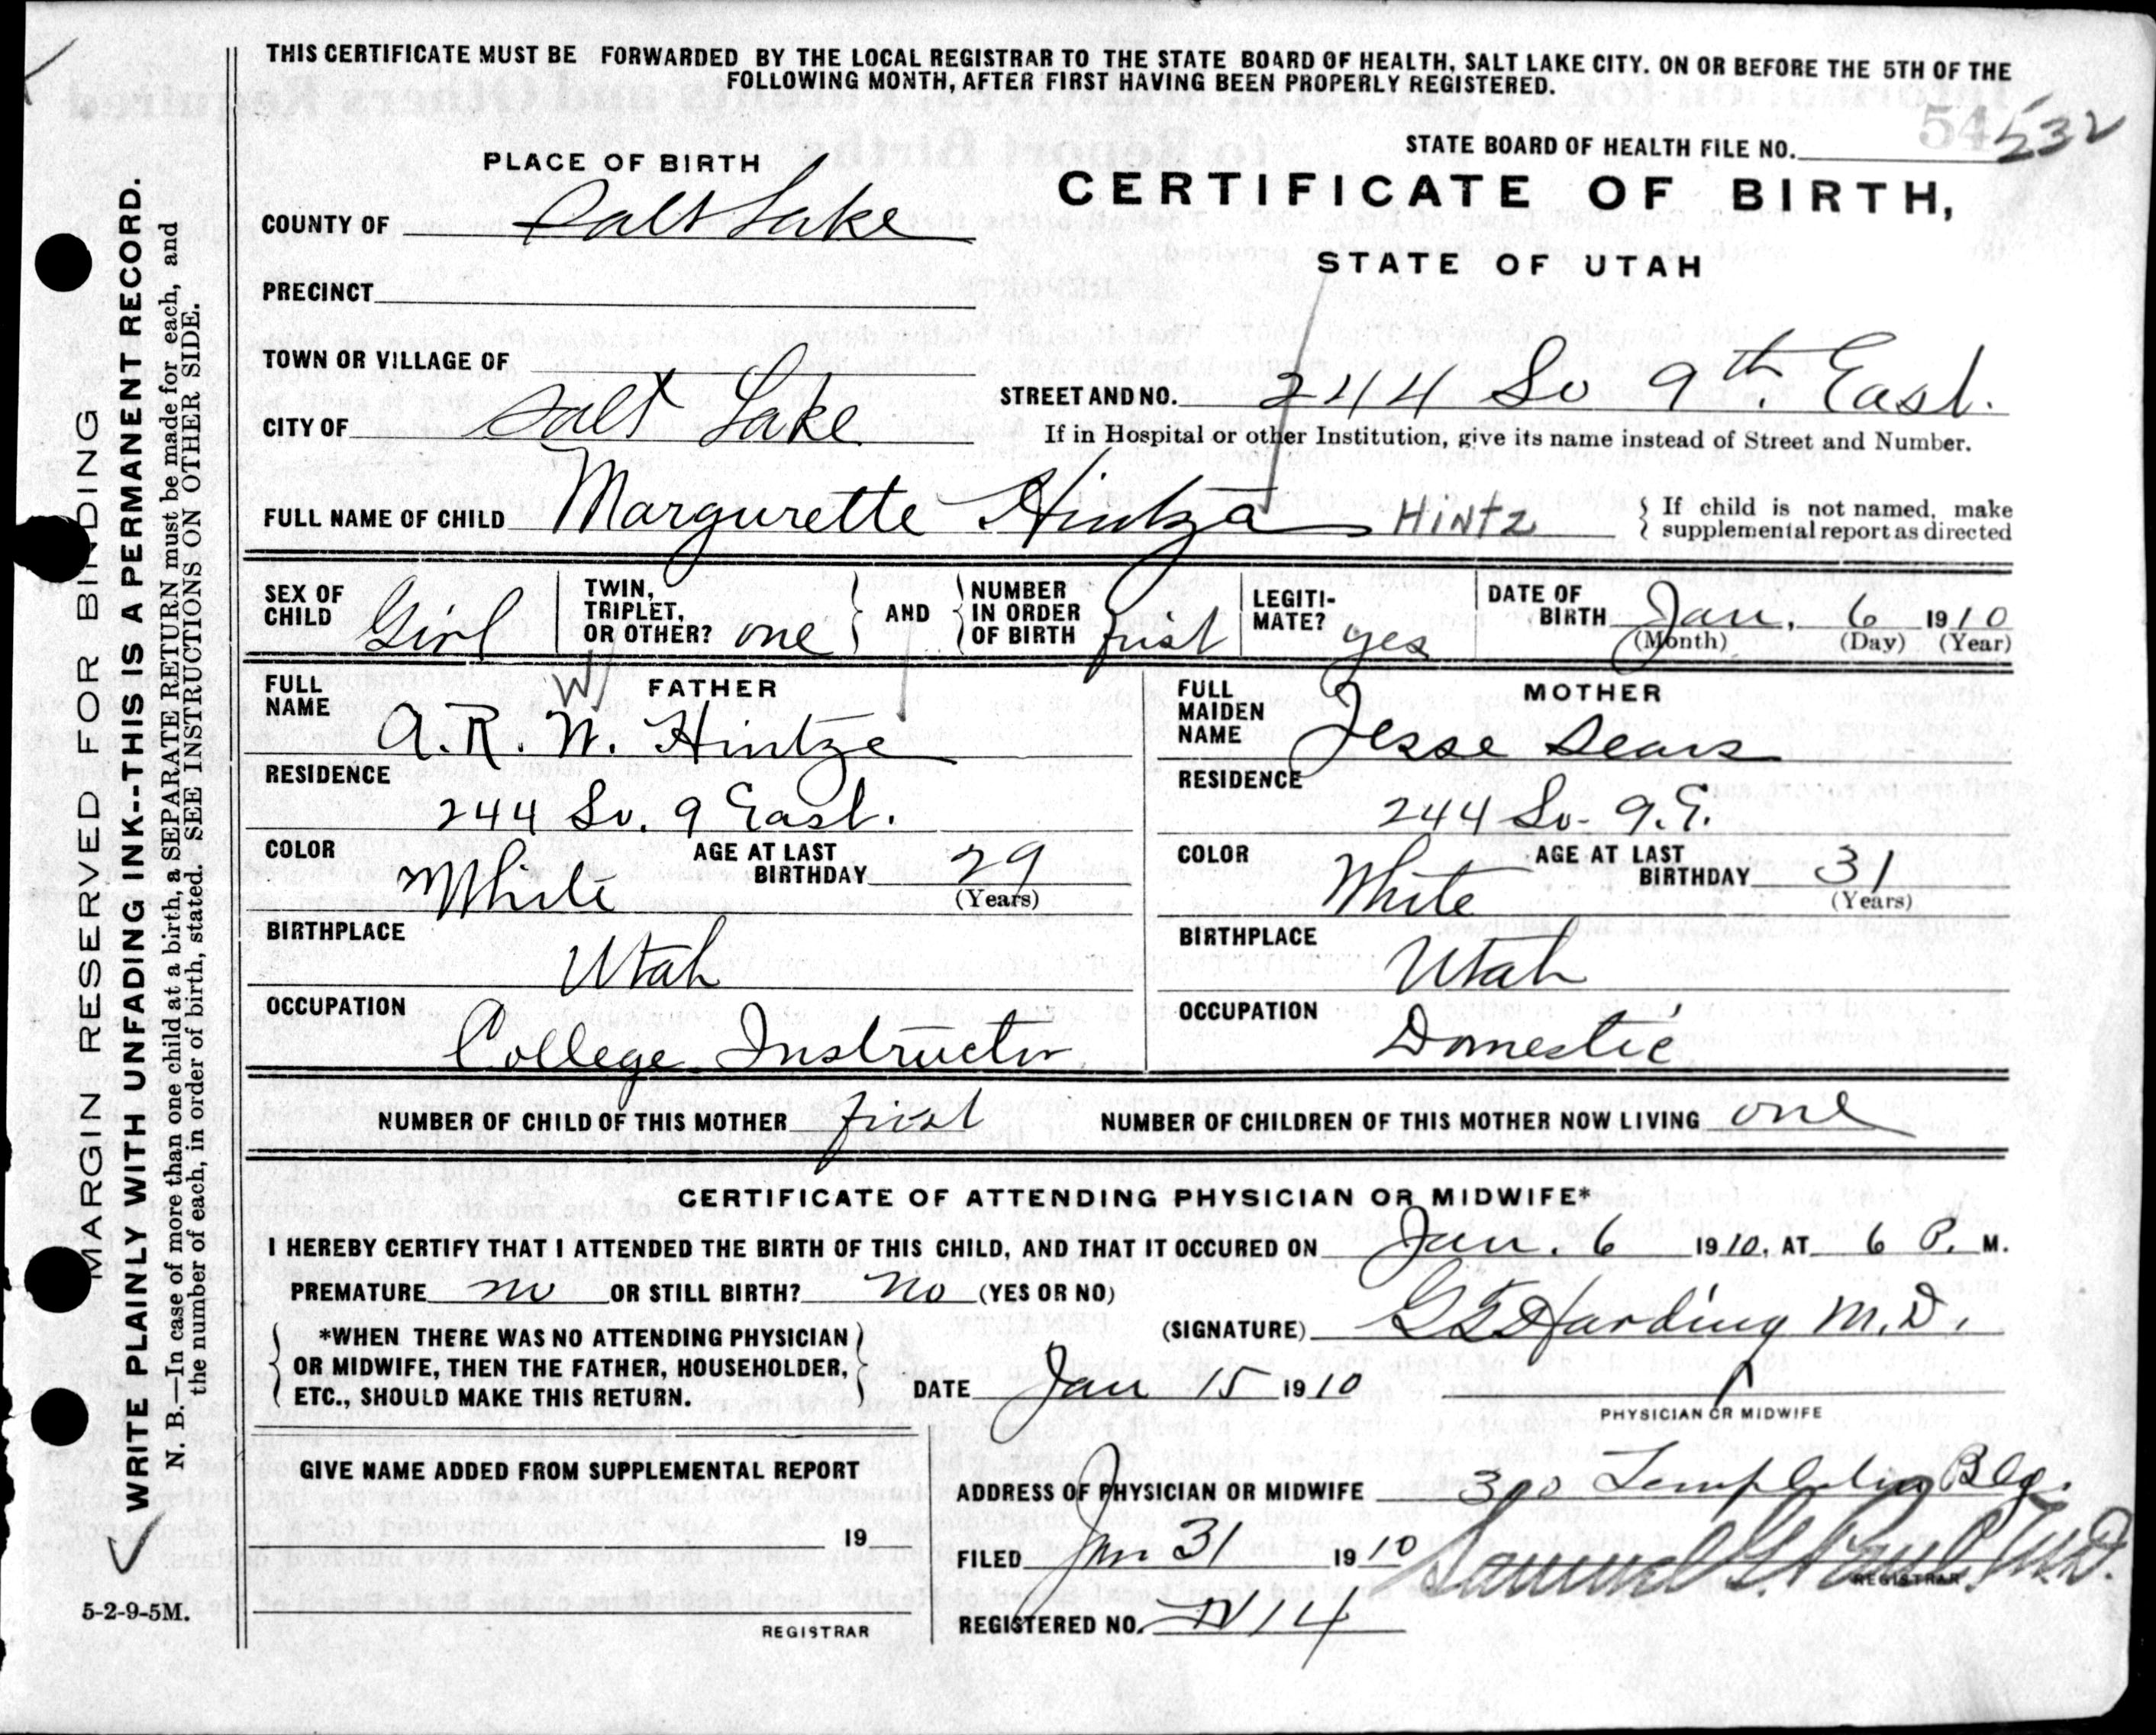 THIS CERTIFICATE MUST BE FORWARDED BY THE LOCAL REGISTRAR TO THE STATE BOARD OF HEALTH, SALT LAKE CITY. ON OR BEFORE THE 5TH OF THE
FOLLOWING MONTH, AFTER FIRST HAVING BEEN PROPERLY REGISTERED.
STATE BOARD OF HEALTH FILE NO. 54 532
PLACE OF BIRTH
CERTIFICATE OF BIRTH,
STATE OF UTAH
COUNTY OF Salt Lake
PRECINCT
TOWN OR VILLAGE OF
CITY OF Salt Lake
STREET AND NO. 244 So 9th East.
If in Hospital or other Institution, give its name instead of Street and Number.
FULL NAME OF CHILD Margurette Hintze HINTZ
If child is not named, make
supplemental report as directed
SEX OF CHILD Girl
TWIN, TRIPLET, OR OTHER? one
AND
NUMBER IN ORDER OF BIRTH first
LEGITI-MATE? yes
DATE OF BIRTH Jan. 6 1910
(Month) (Day) (Year)
FATHER
FULL NAME A. R. W. Hintze
W
RESIDENCE
244 So. 9 East.
COLOR White
AGE AT LAST BIRTHDAY 29
(Years)
BIRTHPLACE
Utah
OCCUPATION
College Instructor
MOTHER
FULL MAIDEN NAME Jesse Sears
RESIDENCE
244 So. 9. E.
COLOR White
AGE AT LAST BIRTHDAY 31
(Years)
BIRTHPLACE
Utah
OCCUPATION
Domestic
NUMBER OF CHILD OF THIS MOTHER first NUMBER OF CHILDREN OF THIS MOTHER NOW LIVING one
CERTIFICATE OF ATTENDING PHYSICIAN OR MIDWIFE*
I HEREBY CERTIFY THAT I ATTENDED THE BIRTH OF THIS CHILD, AND THAT IT OCCURED ON Jan. 6 1910, AT 6 P. M.
PREMATURE no OR STILL BIRTH? no (YES OR NO)
*WHEN THERE WAS NO ATTENDING PHYSICIAN
OR MIDWIFE, THEN THE FATHER, HOUSEHOLDER,
ETC., SHOULD MAKE THIS RETURN.
(SIGNATURE) Harding M.D.
DATE Jan 15 1910
PHYSICIAN OR MIDWIFE
GIVE NAME ADDED FROM SUPPLEMENTAL REPORT
19
REGISTRAR
ADDRESS OF PHYSICIAN OR MIDWIFE 300 Templeton Blg.
FILED Jan 31 1910 Samuel G. Paul. M.D.
REGISTRAR
REGISTERED NO. 14
MARGIN RESERVED FOR BINDING
WRITE PLAINLY WITH UNFADING INK--THIS IS A PERMANENT RECORD.
N. B.—In case of more than one child at a birth, a SEPARATE RETURN must be made for each, and
the number of each, in order of birth, stated. SEE INSTRUCTIONS ON OTHER SIDE.
5-2-9-5M.